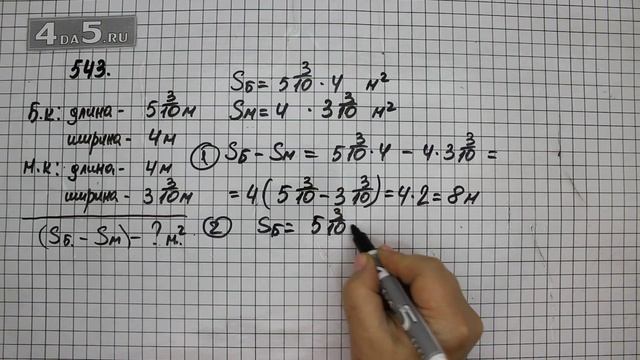 4DA5.RU
543.
Б.к: длина - 5 3/10 м
ширина - 4м
М.к: длина - 4м
ширина - 3 3/10 м
(Sб. - Sм) - ? м.²
Sб = 5 3/10 · 4 м²
Sм = 4 · 3 3/10 м²
① Sб - Sм = 5 3/10 · 4 - 4 · 3 3/10 =
= 4 (5 3/10 - 3 3/10) = 4 · 2 = 8 м
② Sб = 5 3/10